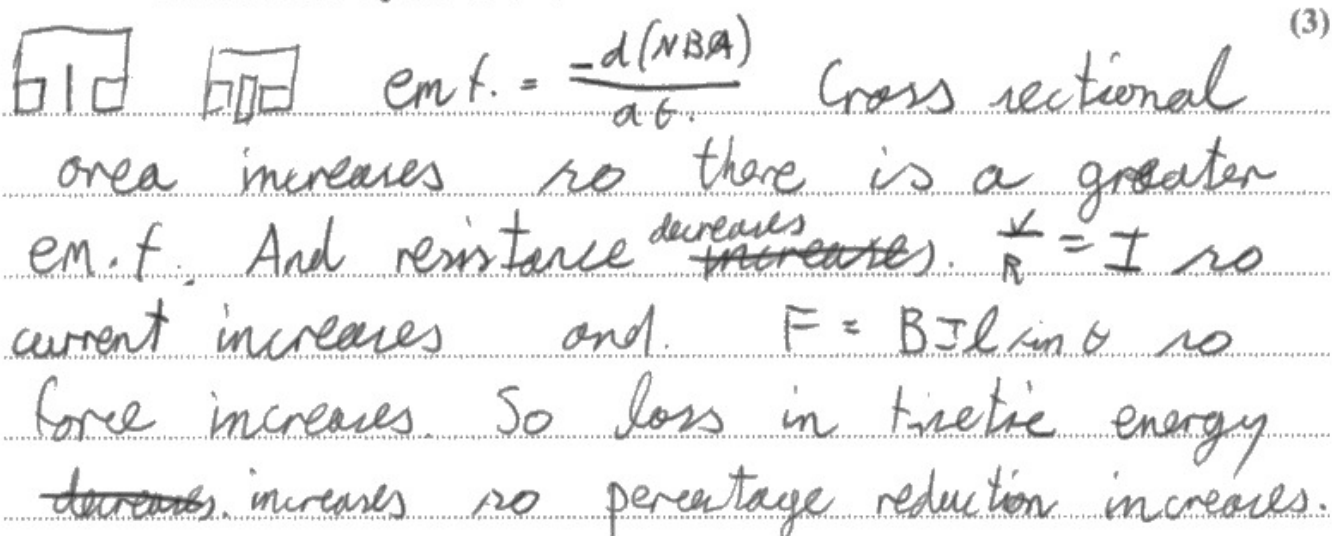 (3)
em f. = -d(NBA)/dt. Cross sectional
area increases so there is a greater
em.f. And resistance decreases increases. V/R = I so
current increases and. F = BIl sin θ so
force increases. So loss in kinetic energy
decreases. increases so percentage reduction increases.